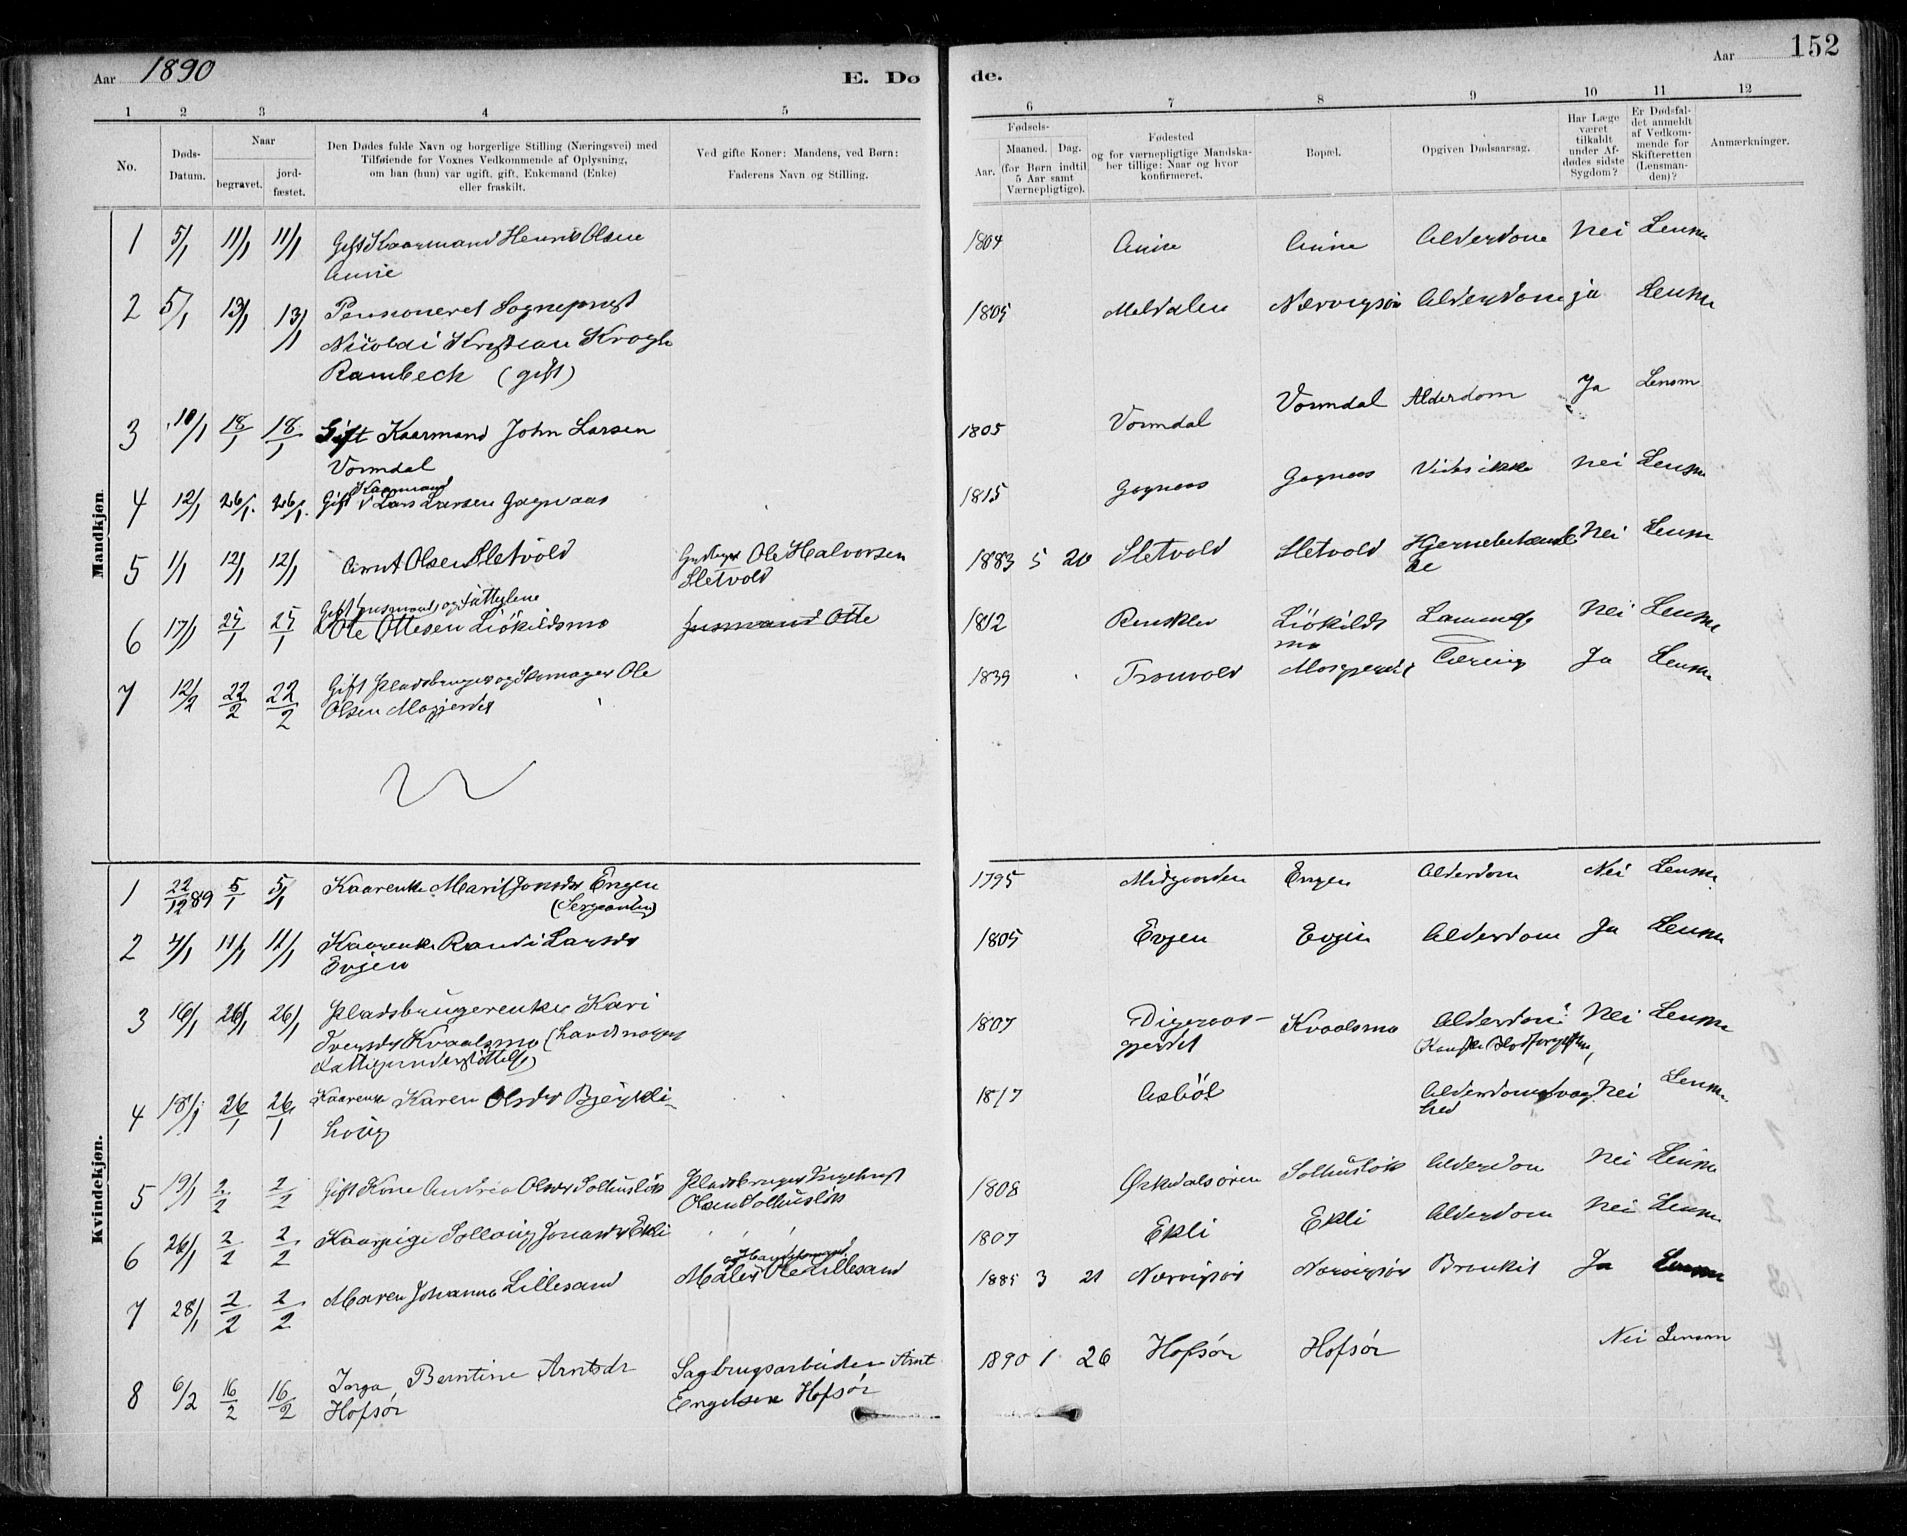 Aar 1890 E. Dø
de. Aar 152
1 2 3 4 5
6 7 8 9 10 11 12
No.
Døds-
Datum.
Naar
begravet.
jord-
fæstet.
Den Dødes fulde Navn og borgerlige Stilling (Næringsvei) med
Tilføiende for Voxnes Vedkommende af Oplysning,
om han (hun) var ugift, gift, Enkemand (Enke)
eller fraskilt.
Ved gifte Koner: Mandens, ved Børn:
Faderens Navn og Stilling.
Fødsels-
Aar. Maaned. Dag.
(for Børn indtil
5 Aar samt
Værnepligtige).
Fødested
og for værnepligtige Mandska-
ber tillige: Naar og hvor
konfirmeret.
Bopæl.
Opgiven Dødsaarsag.
Har Læge
været
tilkaldt
under Af-
dødes sidste
Sygdom?
Er Dødsfal-
det anmeldt
af Vedkom-
mende for
Skifteretten
(Lensman-
den)?
Anmærkninger.
Mandkjøn.
1 5/1 11/1 11/1 Gift Kaarmand Henrik Olsen 1804 Aune Aune Alderdom Nei Lensm
Aune
2 5/1 13/1 13/1 Pensioneret Sogneprest 1805 Meldalen Nærvigsør Alderdom ja Lensm
Nicolai Kristian Krogh
Rambech (gift)
3 10/1 18/1 18/1 Gift Kaarmand John Larsen 1805 Vormdal Vormdal Alderdom Ja Lensm
Vormdal
Kaarmand
4 12/1 26/1 26/1 Gift Lars Larsen Gagnaas 1815 Gagnaas Gagnaas Vides ikke Nei Lensm
5 1/1 12/1 12/1 Arnt Olsen Sletvold Ole Halvorsen 1883 5 20 Sletvold Sletvold Nei Lensm
Sletvold
Gift Husmand, og Fattiglem
6 17/1 25/1 25/1 Ole Ottesen Liøkildsmo Husmand Otte 1812 Liøkilds Nei Lensm
mo
7 12/2 22/2 22/2 Gift Pladsbruger og Skomager Ole 1839 Tronvold Tæring Ja Lensm
Olsen
Kvindekjøn.
1 22/12 89 5/1 5/1 Kaarenke Marit Jonsdr Engen 1795 Midgaarden Engen Alderdom Nei Lensm.
(Sergeanten)
2 4/1 11/1 11/1 Kaarenke Randi Larsdr 1805 Evjen Evjen Alderdom Ja Lensm
Evjen
3 16/1 26/1 26/1 Pladsbrugerenke Kari 1807 Digeraas- Kvaalsmo Alderdom. Nei Lensm
Iversdr Kvaalsmo gjerdet
Fattigunderstøttelse)
4 18/1 26/1 26/1 Kaarenke Karen Olsdr 1817 Asbøl Alderdomssvag- Nei Lensm.
hed
5 19/1 2/2 2/2 Gift Kone Andrea Olsdr Solhusløk Pladsbruger Ingebrigt 1808 Ørkedalsøren Solhusløk Alderdom Nei Lensm
Olsen Solhusløk
6 26/1 2/2 2/2 Kaarpige Solloug Jonasdr Ekli 1807 Ekli Ekli Alderdom Nei Lensm
og Handelsmand
7 28/1 2/2 2/2 Maren Johanna Lillesand Maler Ole Lillesand 1885 3 21 Nærvigsør Nærvigsør Bronkit Ja Lensm
8 6/2 16/2 16/2 Inga Berntine Arntsdr Sagbrugsarbeider Arnt 1890 1 26 Hofsør Hofsør Nei Lensm
Hofsør Engelsen Hofsør